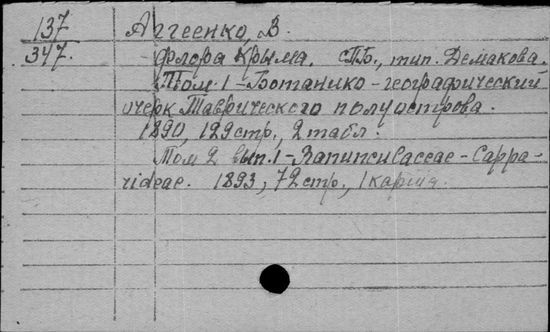 137
347.
Аггеенко, В.
Флора Крыма. СПБ., тип. Демакова.
Том. 1 - Ботанико-географический
очерк Таврического полуострова.
1890, 129 стр., 2 табл.
Том 2 вып. 1 - Ranunculaceae - Cappa-
rideae. 1893, 72 стр., 1 карта.